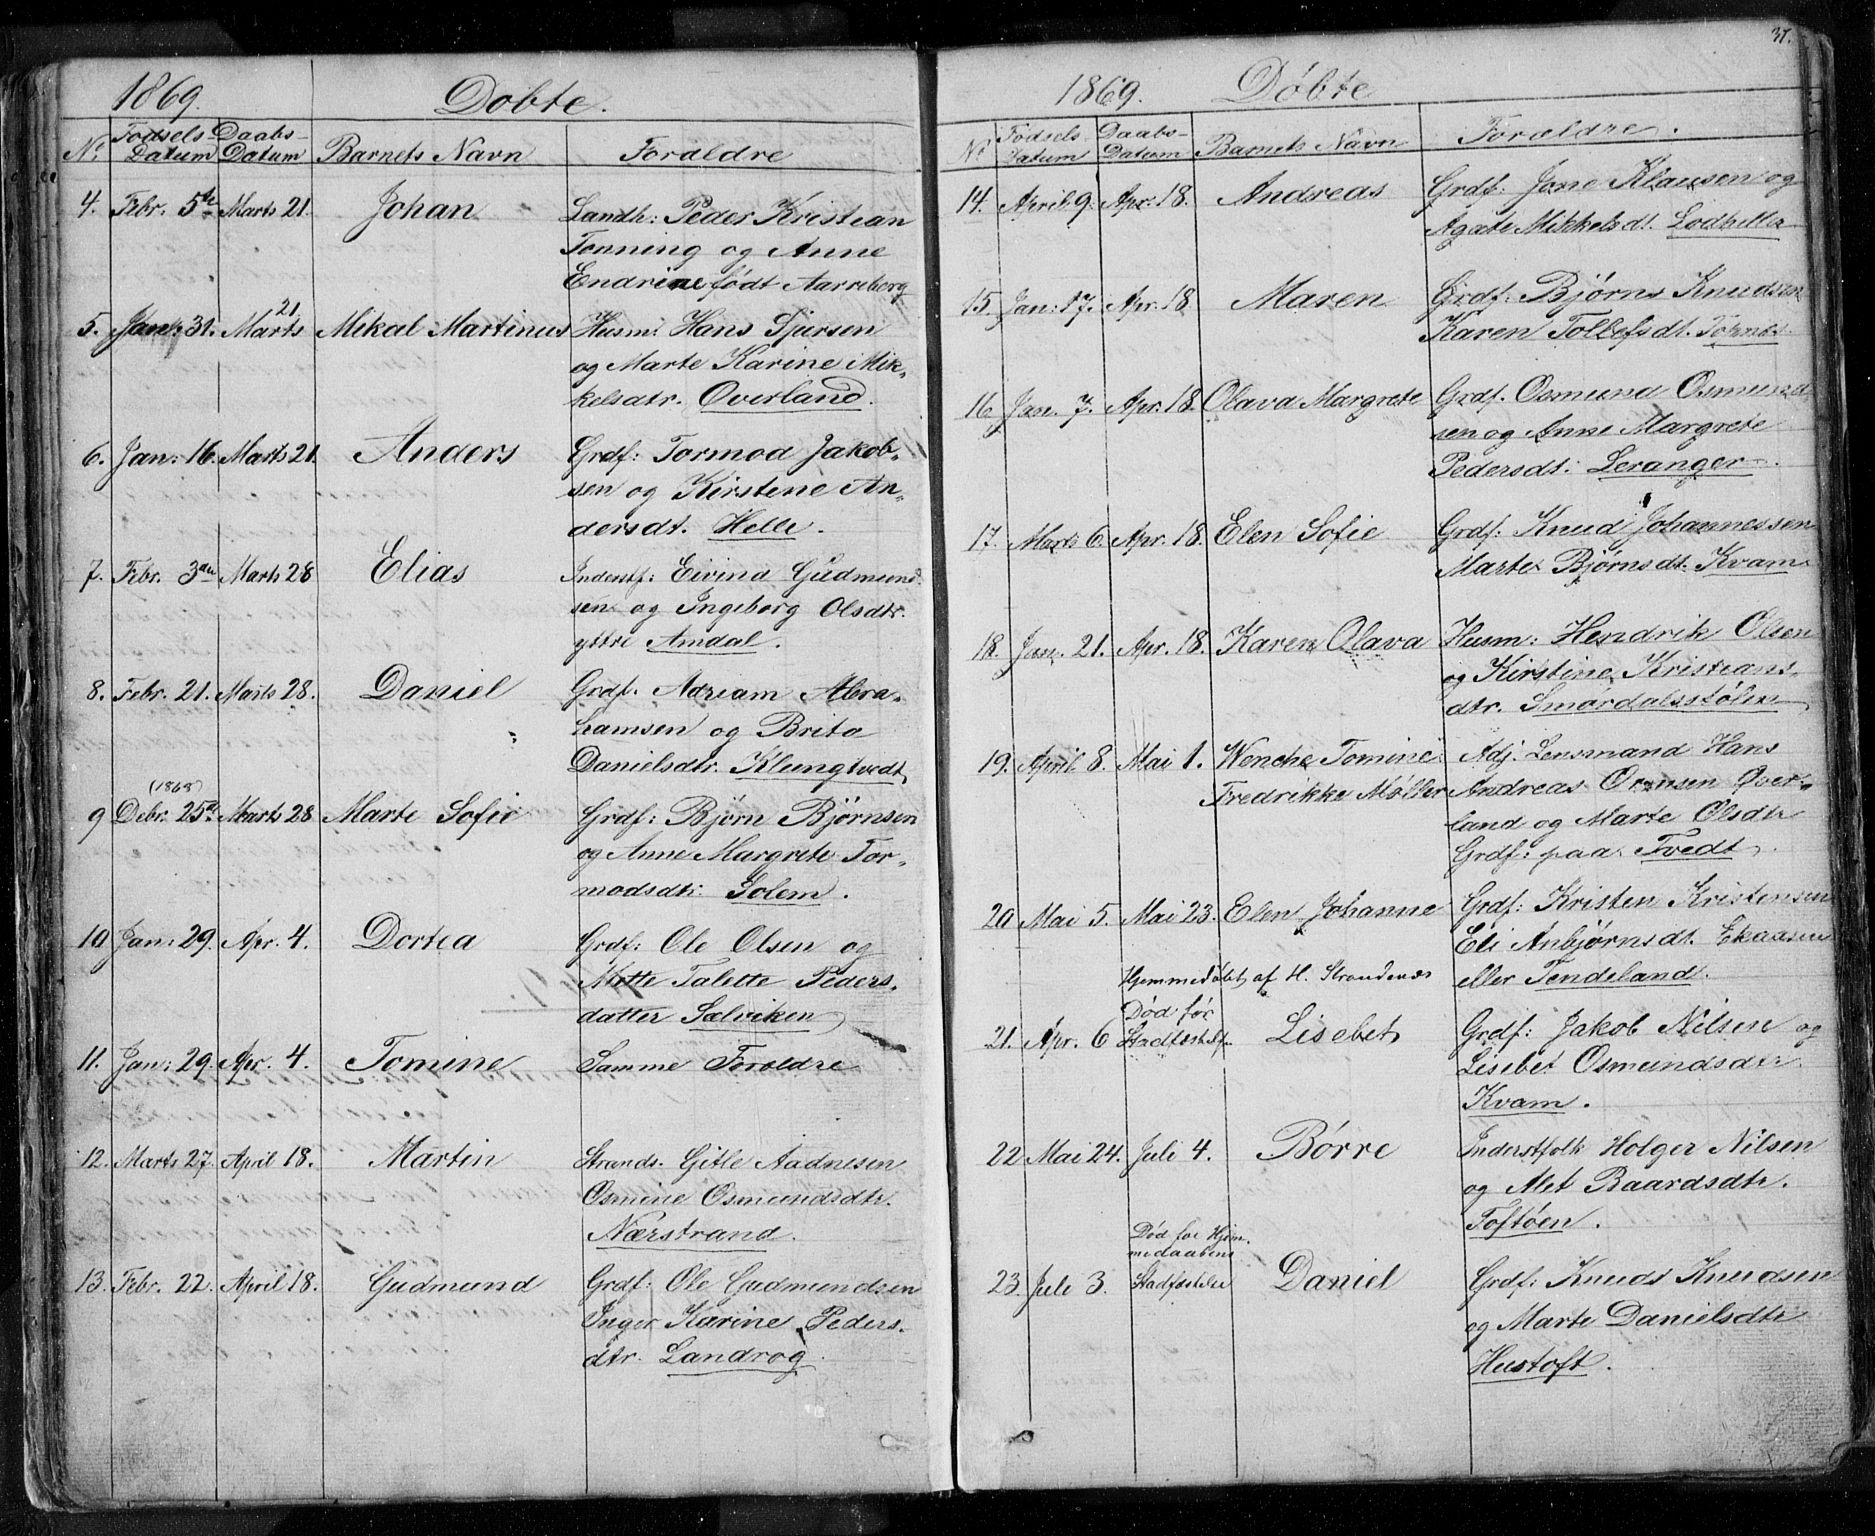 1869. Døbte.
No Fødsels Datum Daabs-Datum Barnets Navn Forældre
4. Febr. 5te Marts 21. Johan Landh: Peder Kristian
Tonning og Anne
Endrine født Aarreberg
5. Jan: 31. Marts 21 Mikal Martinus Husm: Hans Tjersen
og Marte Karine Mik-
kelsdtr. Øverland.
6. Jan: 16. Marts 21. Anders Grdf: Tormod Jakob-
sen og Kirstene An-
dersdt. Helle.
7. Febr. 3die Marts 28 Elias Inderstf: Eivind Gudmund-
sen og Ingeborg Olsdtr.
yttre Amdal.
8. Febr. 21. Marts 28. Daniel Grdf. Adriam Abra-
hamsen og Brita
Danielsdtr. Klungtvedt
(1868)
9 Debr. 25de Marts 28 Marte Sofie Grdf: Bjørn Bjørnsen
og Anne Margrete Tor-
modsdt: Solem.
10 Jan: 29. Apr. 4. Dortea Grdf: Ole Olsen og
Mette Talette Peders-
datter Sælviken
11. Jan: 29. Apr. 4. Tomine Samme Foroldre
12. Marts 27. April 18. Martin Strands. Gitle Aadnesen
Osmine Osmundsdtr.
Nærstrand.
13. Febr. 22. April 18. Gudmund Grdf: Ole Gudmundsen
Inger Karine Peders-
dtr. Landrog.
37.
1869. Døbte
No Fødsels Datum Daabs-Datum Barnets Navn Forældre.
14. April 9. Apr. 18. Andreas Grdf: Jone Klausen og
Agate Mikkelsdt. Lodhella
15. Jan: 17. Apr. 18 Maren Grdf: Bjørns Knudsen
Karen Tollefsdt.
16 Jan. 7. Apr. 18. Olava Margrete Grdf. Osmund Osmund-
sen og Anne Margrete
Pedersdt: Leranger.
17. Marts 6. Apr. 18. Elen Sofie Grdf: Knud Johannessen
Marte Bjørnsdt: Kvam
18. Jan. 21. Apr. 18. Karen Olava Husm: Hendrik Olsen
og Kirstine Kristians-
dtr. Smørdalsstølen
19. April 8. Mai 1. Wenche Tomine Adj. Lensmand Hans
Fredrikke Møller Andreas Ormsen Øver-
land og Marte Olsdtr
Grdf: paa Tvedt.
20 Mai 5. Mai 23. Elen Johanne Grdf: Kristen Kristensen
Eli Anbjørnsdt. Ekaasen
Hjemmedøbt af H. Strandenæs eller Tendeland.
Død før
21. Apr. 6 Stadfæstelse Lisebet Grdf: Jakob Nilsen og
Lisebet Osmundsdtr.
Kvam.
22 Mai 24. Juli 4. Børre Inderstfolk Holger Nilsen
og Met Baardsdtr.
Toftøen.
Død før Hjem-
medaabens
23. Juli 3. Stadfæstelse Daniel Grdf: Knuds Knudsen
og Marte Danielsdtr
Hustoft.